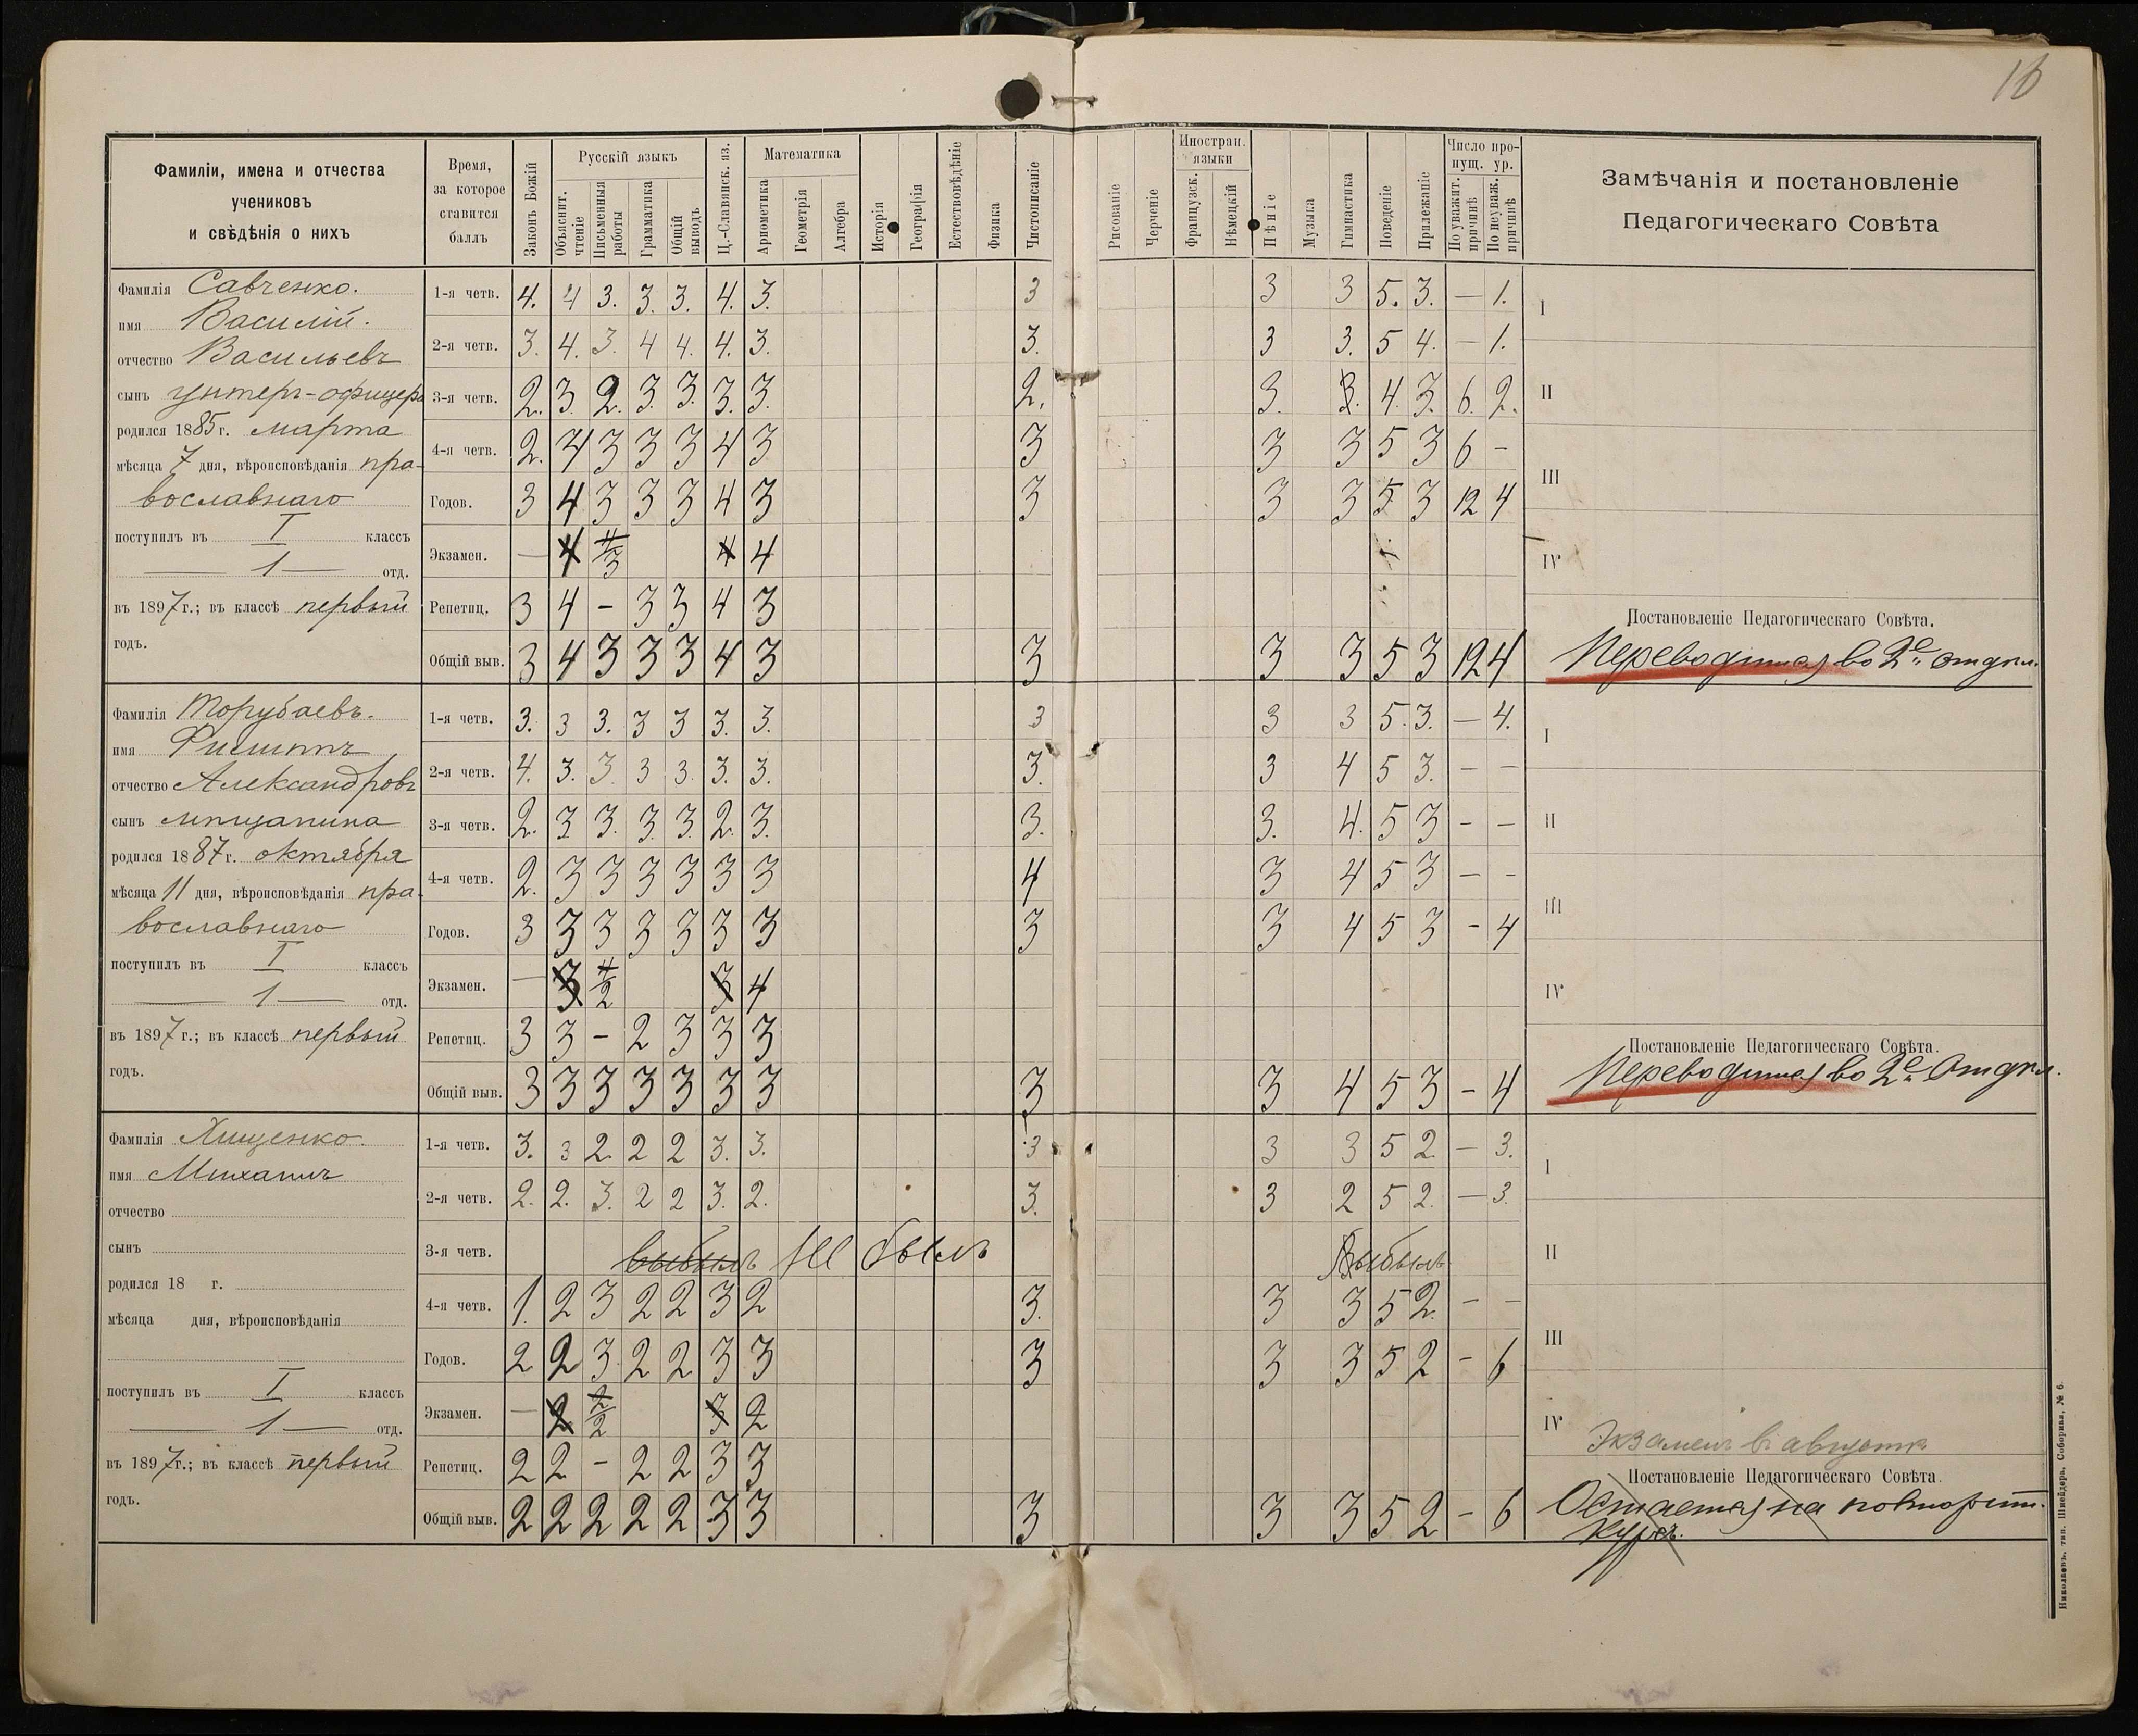 16
Фамиліи, имена и отчества
учениковъ
и свѣдѣнія о нихъ
Время,
за которое
ставится
баллъ
Законъ Божій
Русскій языкъ
Объяснит. чтеніе
Письменныя работы
Грамматика
Общій выводъ
Ц.-Славянск. яз.
Математика
Ариѳметика
Геометрія
Алгебра
Исторія
Географія
Естествовѣдѣніе
Физика
Чистописаніе
Рисованіе
Черченіе
Иностран. языки
Французск.
Нѣмецкій
Пѣніе
Музыка
Гимнастика
Поведеніе
Прилежаніе
Число пропущ. ур.
По уважит. причинѣ
По неуваж. причинѣ
Замѣчанія и постановленіе
Педагогическаго Совѣта
Фамилія Савченко.
имя Василій.
отчество Васильевъ
сынъ унтеръ-офицера
родился 1885 г. марта
мѣсяца 7 дня, вѣроисповѣданія пра-
вославнаго
поступилъ въ I классъ
— 1 — отд.
въ 1897 г.; въ классѣ первый
годъ.
1-я четв. 4. 4 3. 3. 3. 4. 3. 3 3 3 5. 3. — 1.
2-я четв. 3. 4. 3. 4 4. 4. 3. 3. 3 3. 5 4. — 1.
3-я четв. 2. 3. 2. 3. 3. 3. 3. 2. 3. 3. 4. 3. 6. 2.
4-я четв. 2. 4 3 3 3 4 3 3 3 3 5 3 6 -
Годов. 3 4 3 3 3 4 3 3 3 3 5 3 12 4
Экзамен. — 4 4/3 4 4
Репетиц. 3 4 - 3 3 4 3
Общій выв. 3 4 3 3 3 4 3 3 3 3 5 3 12 4
I
II
III
IV
Постановленіе Педагогическаго Совѣта.
Переводится во 2е отдѣл.
Фамилія Торубаевъ.
имя Филиппъ
отчество Александровъ
сынъ мѣщанина
родился 1887 г. октября
мѣсяца 11 дня, вѣроисповѣданія пра-
вославнаго
поступилъ въ I классъ
— 1 — отд.
въ 1897 г.; въ классѣ первый
годъ.
1-я четв. 3. 3 3. 3 3 3. 3. 3 3 3 5. 3. — 4.
2-я четв. 4. 3. 3. 3 3. 3. 3. 3. 3 4 5 3. — —
3-я четв. 2. 3. 3. 3. 3. 2. 3. 3. 3. 4. 5 3 - —
4-я четв. 2. 3 3 3 3 3 3 4 3 4 5 3 — -
Годов. 3 3 3 3 3 3 3 3 3 4 5 3 - 4
Экзамен. — 3 4/2 3 4
Репетиц. 3 3 - 2 3 3 3
Общій выв. 3 3 3 3 3 3 3 3 3 4 5 3 - 4
I
II
III
IV
Постановленіе Педагогическаго Совѣта.
Переводится во 2е Отдѣл.
Фамилія Хищенко.
имя Михаилъ
отчество
сынъ
родился 18 г.
мѣсяца дня, вѣроисповѣданія
поступилъ въ I классъ
— 1 — отд.
въ 1897 г.; въ классѣ первый
годъ.
1-я четв. 3. 3 2. 2 2 3. 3. 3 3 3 5 2 — 3.
2-я четв. 2. 2. 3. 2 2 3. 2. 3. 3 2 5 2. — 3.
3-я четв. выбылъ не былъ Выбылъ
4-я четв. 1. 2 3 2 2 3 2 3. 3 3 5 2. - —
Годов. 2 2 3 2 2 3 3 3 3 3 5 2 - 6
Экзамен. — 2 2/2 3 2
Репетиц. 2 2 - 2 2 3 3
Общій выв. 2 2 2 2 2 3 3 3 3 3 5 2 - 6
I
II
III
IV
Экзаменъ въ августѣ
Постановленіе Педагогическаго Совѣта.
Остается на повторит.
курсъ.
Николаевъ, тип. Шнейдера, Соборная, № 6.